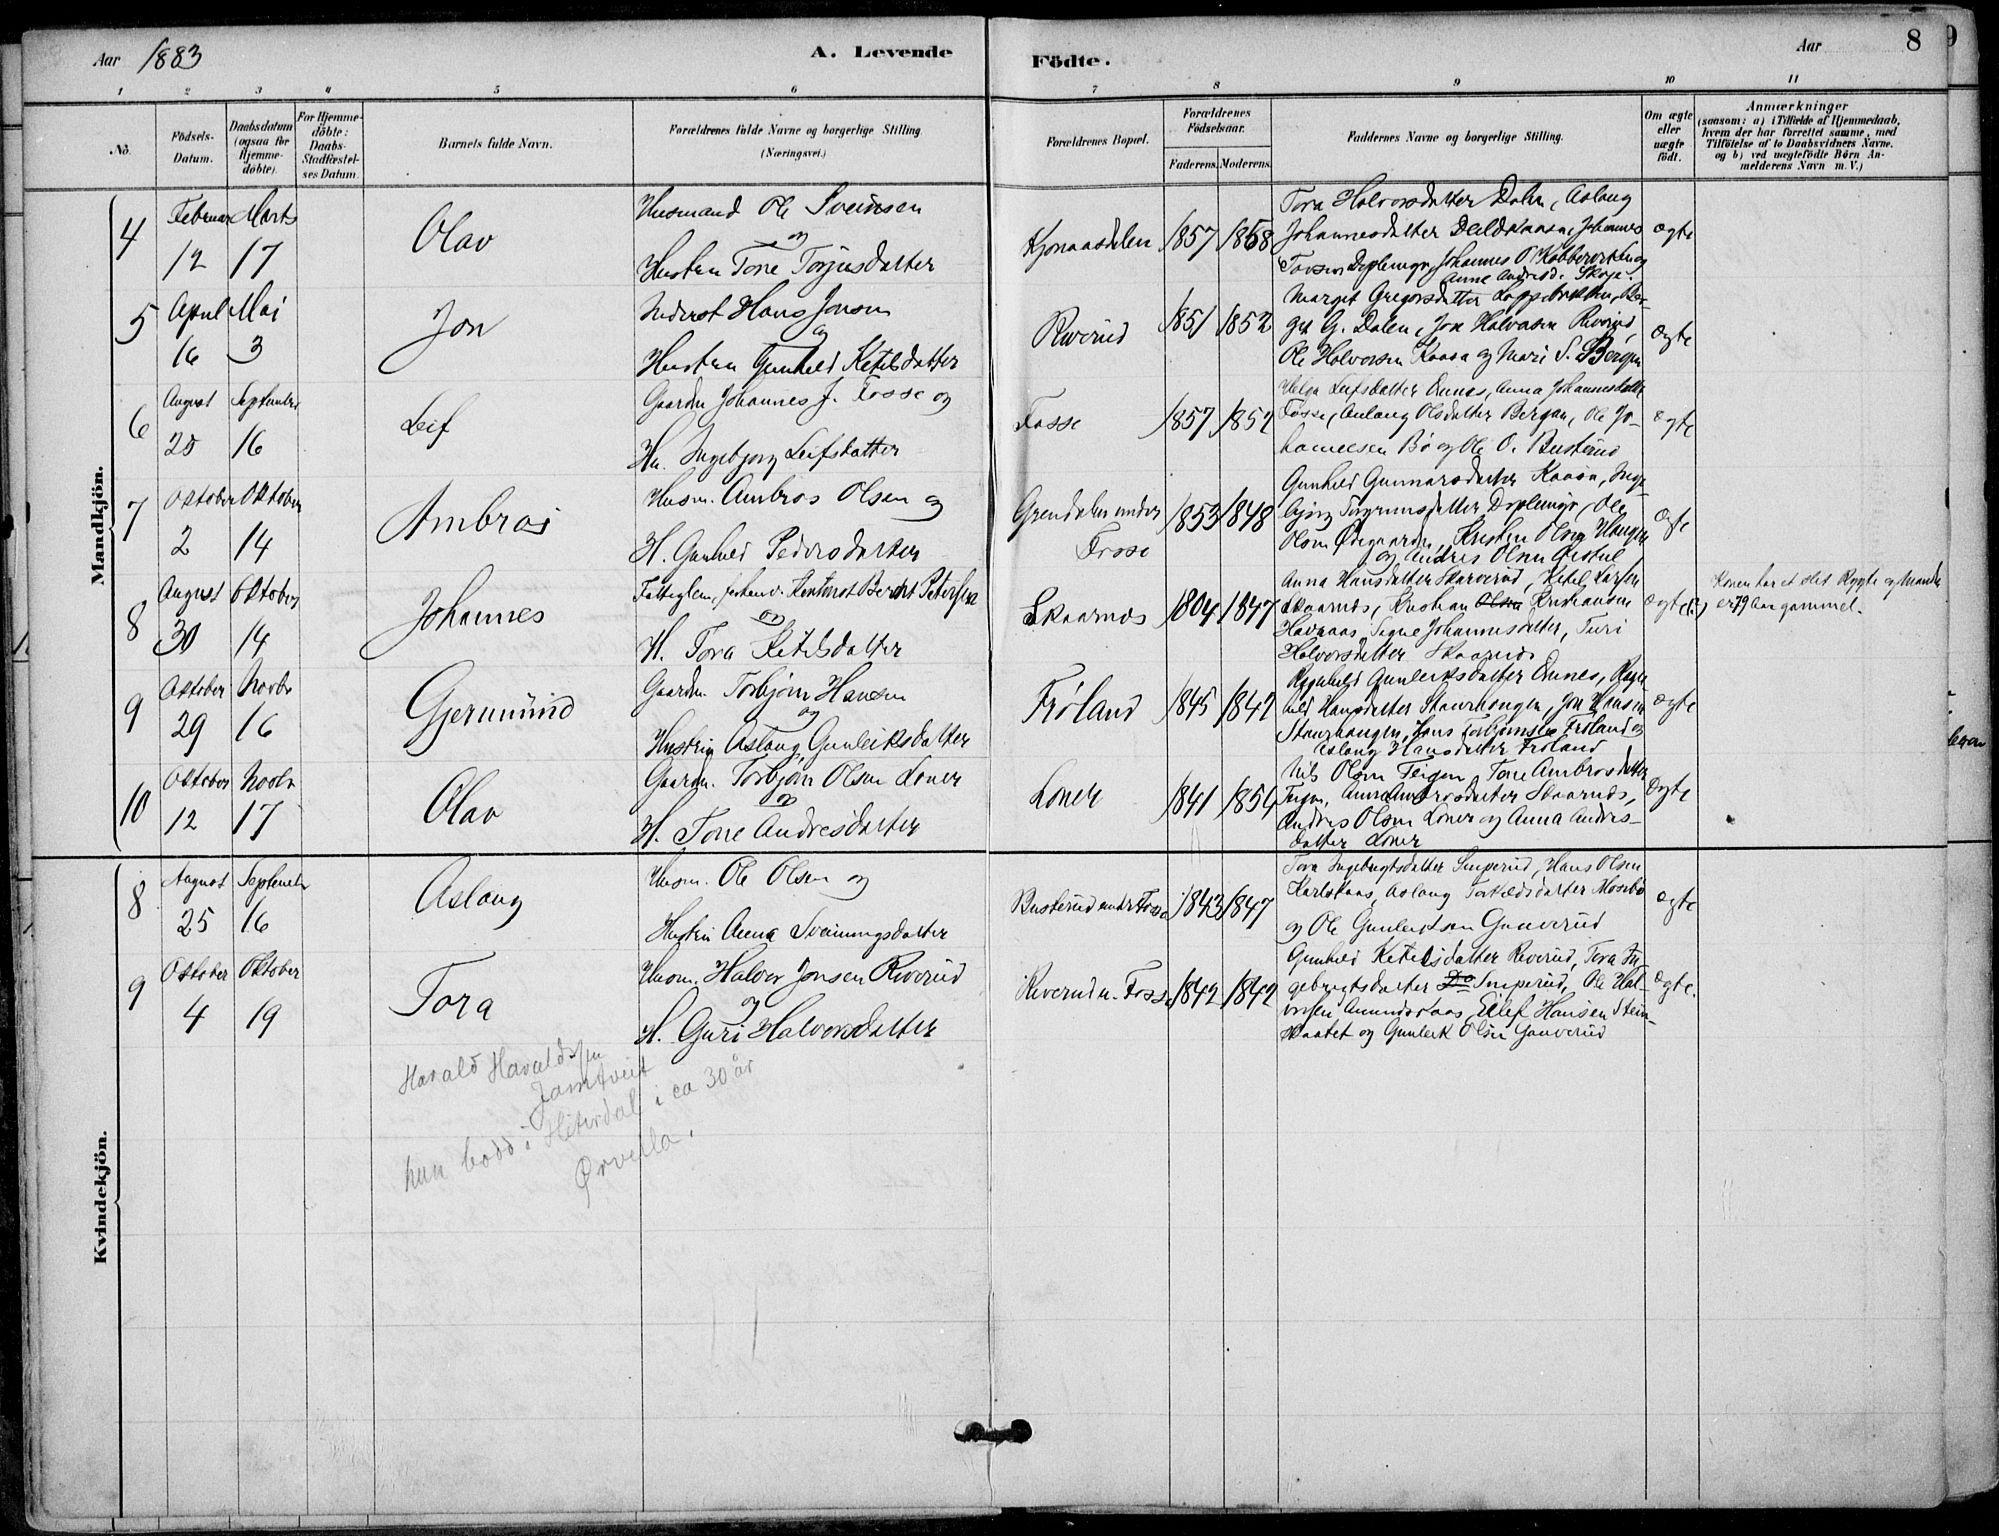 Aar 1883
A. Levende
Födte.
Aar
8
1 2 3 4 5 6 7 8 9 10 11
No.
Födsels-
Datum.
Daabsdatum
(ogsaa for
Hjemme-
döbte).
For Hjemme-
döbte:
Daabs-
Stadfæstel-
ses Datum.
Barnets fulde Navn.
Forældrenes fulde Navne og borgerlige Stilling.
(Næringsvei.)
Forældrenes Bopæl.
Forældrenes
Födselsaar.
Faderens. Moderens.
Faddernes Navne og borgerlige Stilling.
Om ægte
eller
uægte
födt.
Anmærkninger
(saasom: a) i Tilfælde af Hjemmedaab,
hvem der har forrettet samme, med
Tilföielse af to Daabsvidners Navne.
og b) ved uægtefödte Börn An-
melderens Navn m. V.)
Mandkjön.
4
Februar Marts
12 17
Olav
Husmand Ole Sveinsen
og
Hustru Tone Torjusdatter
Kjonaasdalen
1857 1858
Tora Halvorsdatter Dalen, Aslaug
Johannesdatter Johannes
Tovsen Johannes O. og
Anne
ægte
5
April Mai
16 3
Jon
Inderst Hans Jonsen
og
Hustru Gunhild Ketilsdatter
Riverud
1851 1852
Marget Gregorsdatter
G. Dalen, Jon Halvorsen Riverud,
Ole Halvorsen Kaasa og Mari S. Bergan
ægte
6
August September
25 16
Leif
Gaardm. Johannes J. Fosse og
Hu. Ingebjorg Leifsdatter
Fosse
1857 1852
Helga Leifsdatter Ennes, Anna Johannesdatter
Fosse, Aslaug Olsdatter Bergan, Ole Jo-
hannessen Bö og Ole O. Busterud
ægte
7
Oktober Oktober
2 14
Ambros
Husm. Ambros Olsen og
H. Gunhild Pedersdatter
Grendalen under
Fosse
1853 1848
Gunhild Gunnarsdatter Kaasa, Inge-
björg Torgrimsdatter Ole
Olsen Ødegaarden, Kristen Olsen Haugen
og Andres Olsen
ægte
8
August Oktober
30 14
Johannes
Fattiglem, Bernt Petersen
og
H. Tora Ketilsdatter
Skaarnes
1804 1847
Anna Hansdatter Skarverud, Ketil Larsen
Skaarnes, Kristian Olsen Kristiansen
Havnaas, Signe Johannesdatter, Turi
Halvorsdatter Skaarnes
ægte (?)
Konen har et slet Rygte og Manden
er 79 Aar gammel.
9
Oktober Novbr
29 16
Gjermund
Gaardm. Torbjörn Hansen
og
Hustru Aslaug Gunleiksdatter
Fröland
1845 1842
Ragnhild Gunleiksdatter Ennes, Ragn-
hild Hansdatter Staurhaugen, Jon Hansen
Staurhaugen, Hans Torbjörnsen Fröland og
Aslaug Hansdatter Fröland
ægte
10
Oktober Novbr
12 17
Olav
Gaardm. Torbjörn Olsen Loner
og
H. Tone Andresdatter
Loner
1841 1854
Nils Olsen Teigen, Tone Ambrosdatter
Teigen, Anne Ambrosdatter Skaarnes,
Andres Olsen Loner og Anna Andres-
datter Loner
ægte
Kvindekjön.
8
August September
25 16
Aslaug
Husm. Ole Olsen og
Hustru Anna Sveinungsdatter
Busterud under Fosse
1843 1847
Tora Ingebregtsdatter Smperud, Hans Olsen
Karlskaas, Aslaug Torkildsdatter Mosebö
og Ole Gunleiksen Gunverud
ægte
9
Oktober Oktober
4 19
Tora
Husm. Halvor Jonsen Riverud
og
H. Guri Halvorsdatter
Riverud u. Fosse
1842 1842
Gunhild Ketilsdatter Riverud, Tora In-
gebregtsdatter Do Smperud, Ole Hal-
vorsen Amundskaas, Eilef Hansen Stein-
skaatet og Gunleik Olsen Gunverud
ægte.
Harald Haraldsen
Jamtveit
hun bodd i Hiterdal i ca 30 år
Ørvella.